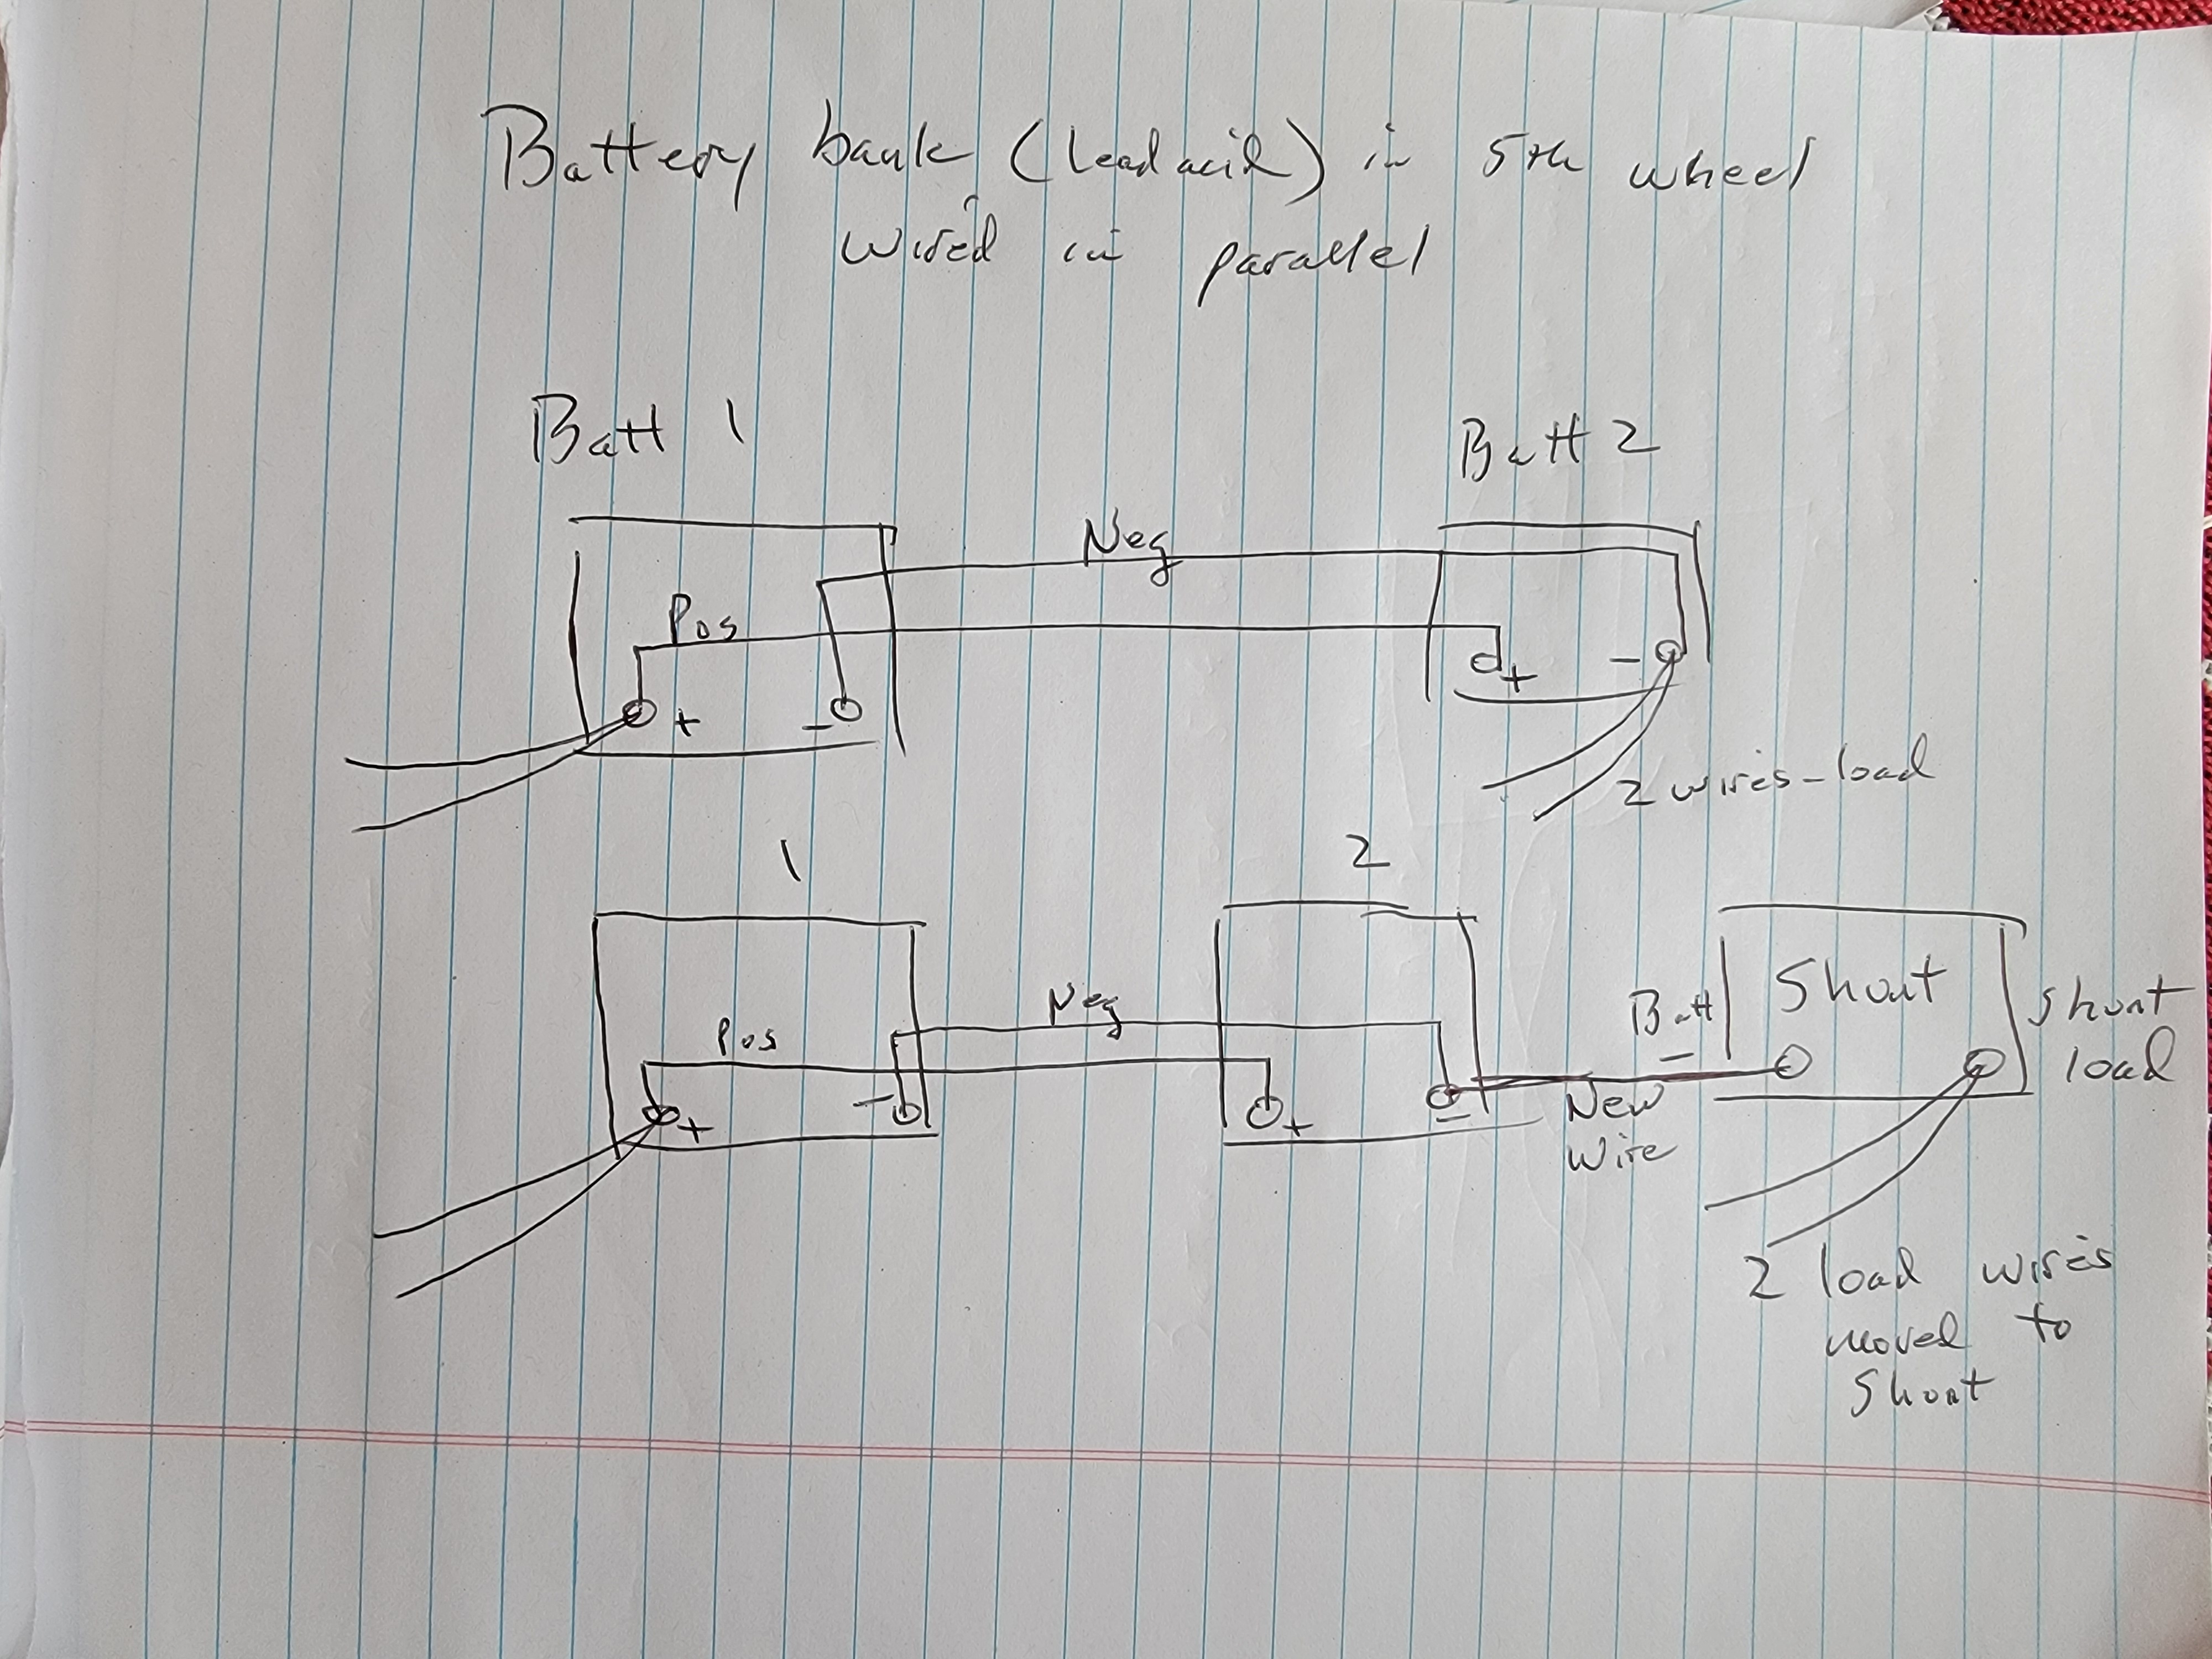 Battery bank (lead acid) in 5th wheel
wired in parallel
Batt 1
Batt 2
Neg
Pos
+
-
+
-
2 wires-load
1
2
Shunt
Batt
-
shunt
load
Neg
Pos
+
-
+
-
New
Wire
2 load wires
moved to
Shunt